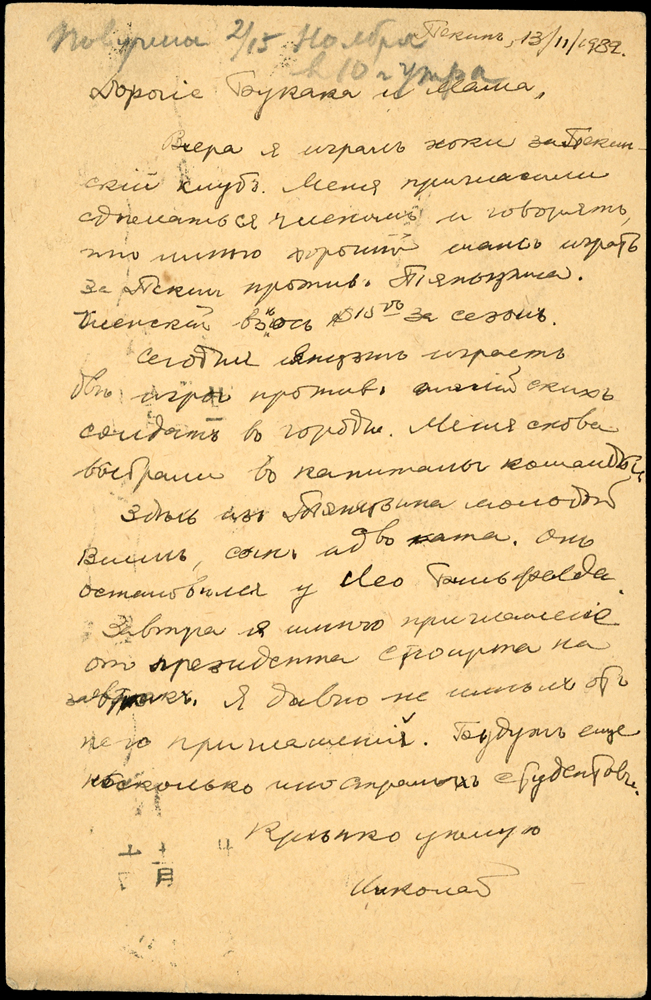 Получена 2/15 Ноября
в 10 ч утра
Пекинъ, 13/11/1932.
Дорогіе Букака и Мама,
Вчера я игралъ хоки за Пекин-
скій клубъ. Меня пригласили
сдѣлаться членомъ и говорятъ,
что имѣю хорошій шансъ играть
за Пекин противъ Тяньцзина.
Членскій взносъ $15 00 за сезонъ.
Сегодня играетъ
двѣ игры противъ англійскихъ
солдатъ въ городѣ. Меня снова
выбрали въ капитаны команды.
Здѣсь изъ Тянцзина молодой
сынъ адвоката. Онъ
остановился у Лео
Завтра я имѣю приглашеніе
от президента Стюарта на
завтракъ. Я давно не имѣлъ отъ
него приглашеній. Будутъ еще
нѣсколько иностранныхъ студентовъ.
Крѣпко цѣлую
Николай
十 十
月